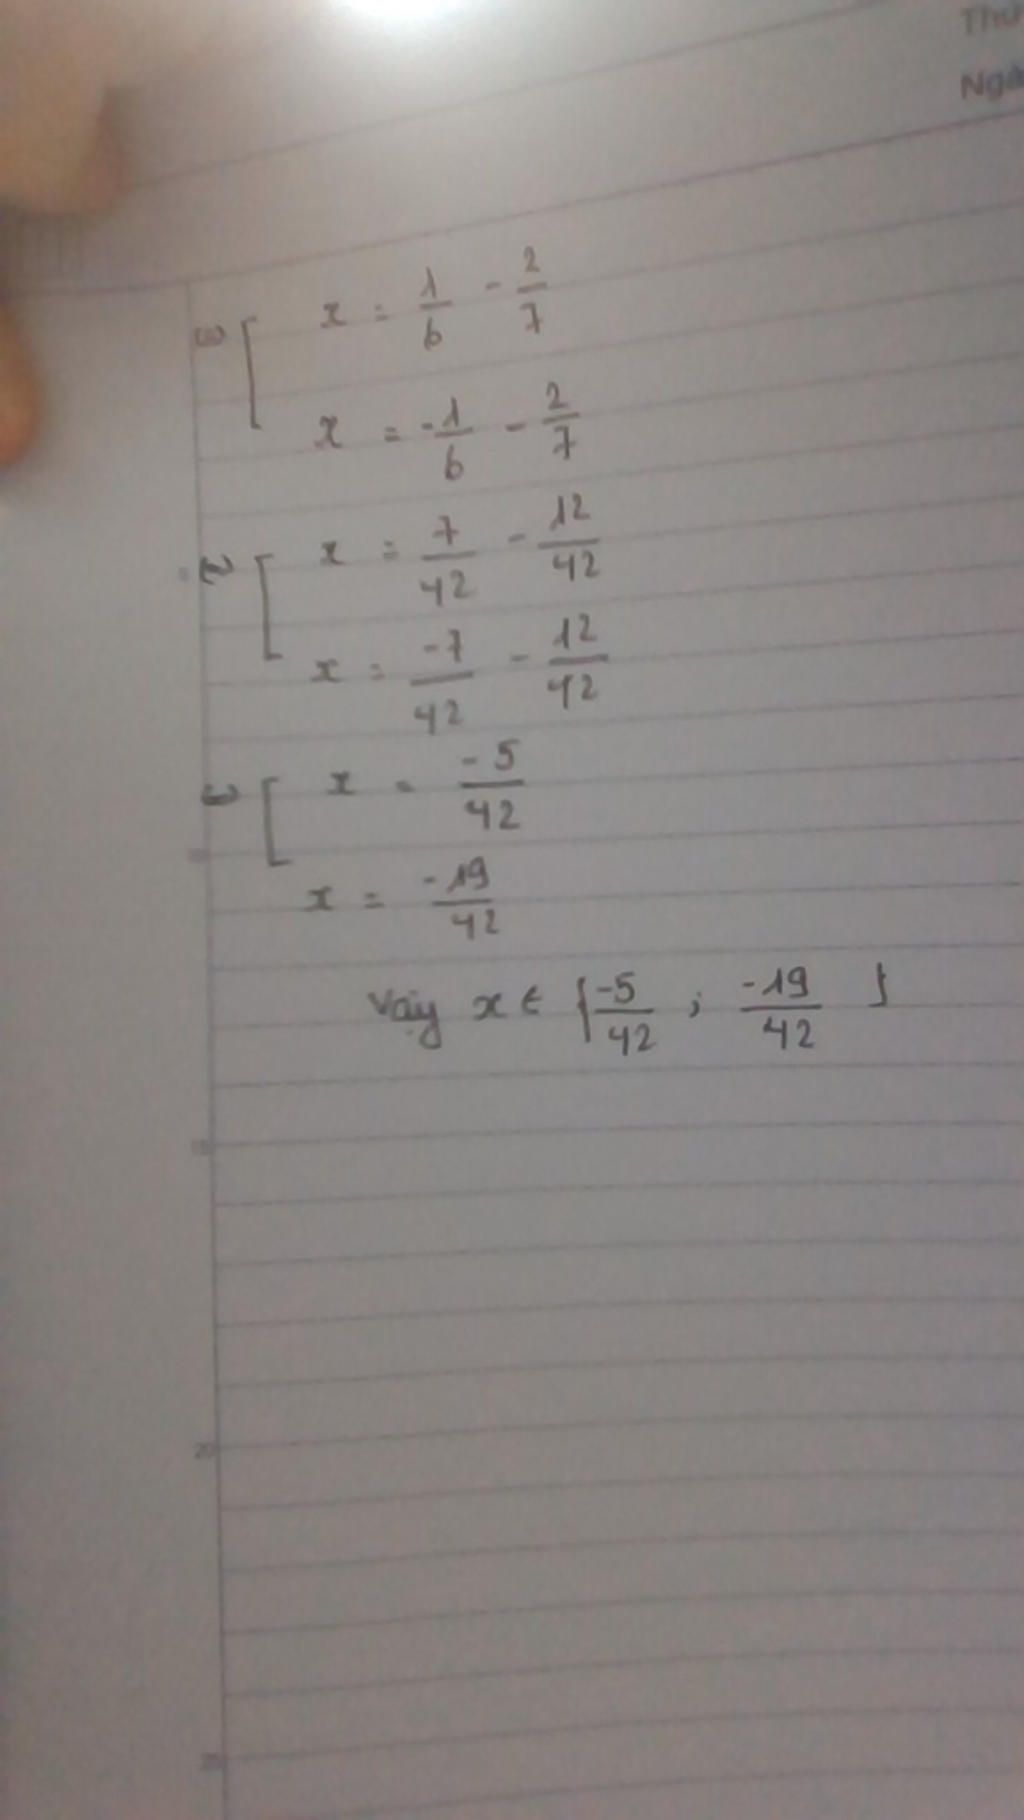 Thứ
Ngà
x = 1/6 - 2/7
x = -1/6 - 2/7
x = 7/42 - 12/42
x = -7/42 - 12/42
x = -5/42
x = -19/42
Vậy x ∈ {-5/42 ; -19/42}
20